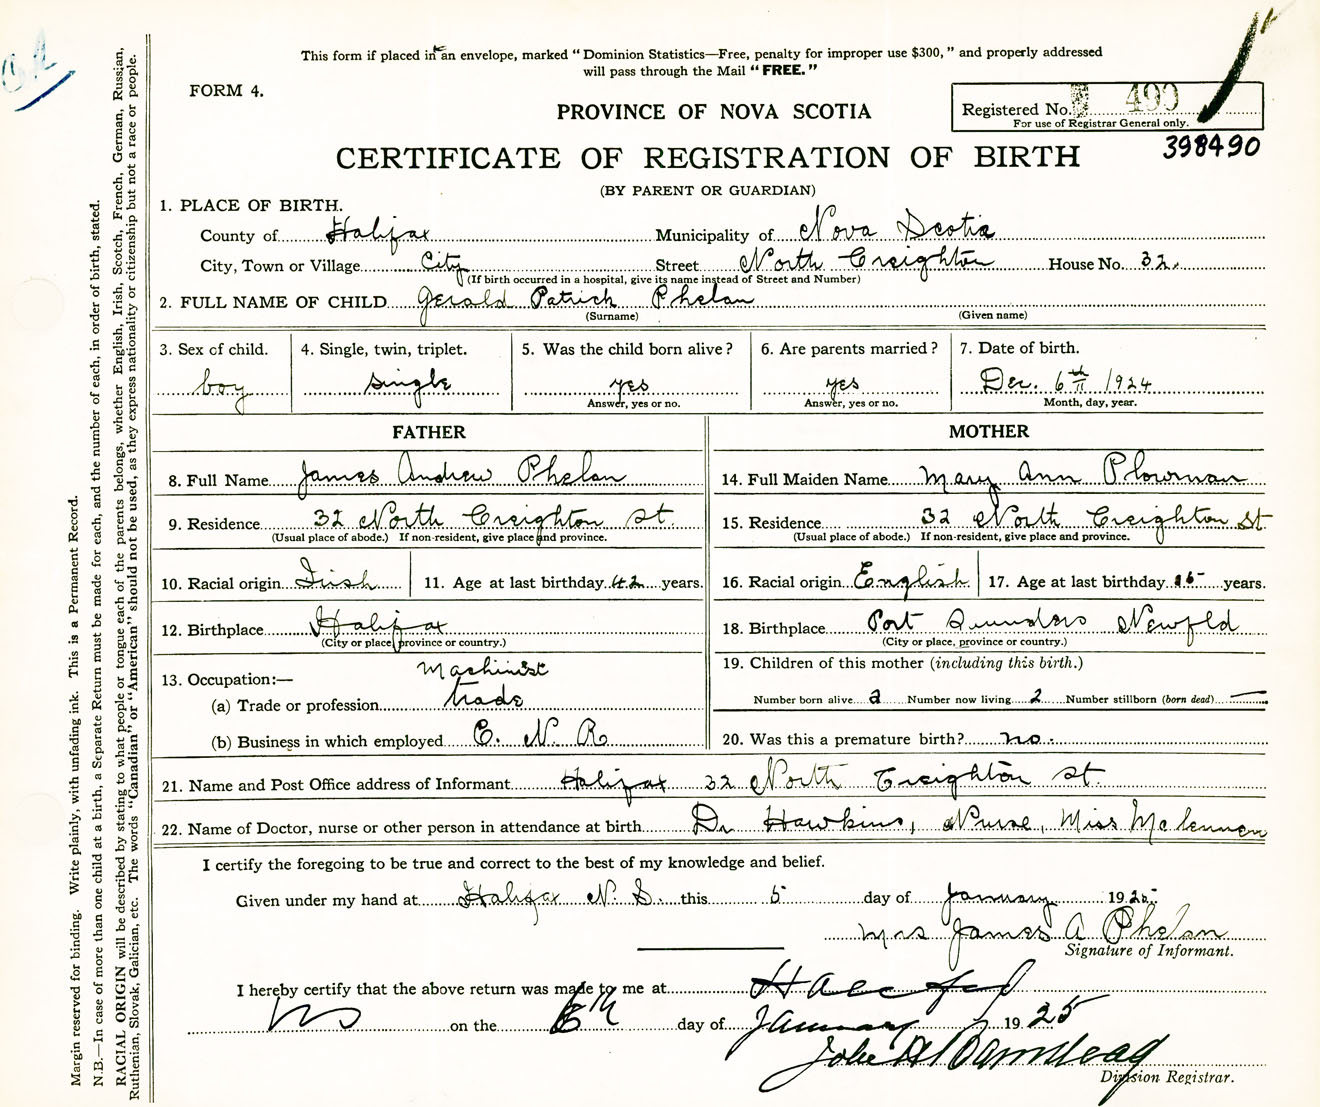 This form if placed in an envelope, marked "Dominion Statistics—Free, penalty for improper use $300," and properly addressed
will pass through the Mail "FREE."
FORM 4.
PROVINCE OF NOVA SCOTIA
Registered No. 490
For use of Registrar General only.
398490
CERTIFICATE OF REGISTRATION OF BIRTH
(BY PARENT OR GUARDIAN)
1. PLACE OF BIRTH.
County of Halifax Municipality of Nova Scotia
City, Town or Village City Street North Creighton House No. 32.
(If birth occurred in a hospital, give its name instead of Street and Number)
2. FULL NAME OF CHILD Gerald Patrick Phelan
(Surname) (Given name)
3. Sex of child. 4. Single, twin, triplet. 5. Was the child born alive? 6. Are parents married? 7. Date of birth.
boy single yes yes Dec. 6th 1924
Answer, yes or no. Answer, yes or no. Month, day, year.
FATHER MOTHER
8. Full Name James Andrew Phelan 14. Full Maiden Name Mary Ann Plowman
9. Residence 32 North Creighton St. 15. Residence 32 North Creighton St
(Usual place of abode.) If non-resident, give place and province. (Usual place of abode.) If non-resident, give place and province.
10. Racial origin Irish 11. Age at last birthday 42 years. 16. Racial origin English 17. Age at last birthday years.
12. Birthplace Halifax 18. Birthplace Port Saunders Newfld
(City or place province or country.) (City or place, province or country.)
13. Occupation:— Machinist 19. Children of this mother (including this birth.)
(a) Trade or profession trade Number born alive 2 Number now living 2 Number stillborn (born dead) —
(b) Business in which employed C. N. R 20. Was this a premature birth? no.
21. Name and Post Office address of Informant Halifax 32 North Creighton St.
22. Name of Doctor, nurse or other person in attendance at birth Dr Hawkins, Nurse, Miss McLennen
I certify the foregoing to be true and correct to the best of my knowledge and belief.
Given under my hand at Halifax N. S. this 5 day of January 1925
Mrs James A Phelan
Signature of Informant.
I hereby certify that the above return was made to me at Halifax
NS on the 6th day of January 1925
John
Division Registrar.
Margin reserved for binding. Write plainly, with unfading ink. This is a Permanent Record.
N.B.—In case of more than one child at a birth, a Separate Return must be made for each, and the number of each, in order of birth, stated.
RACIAL ORIGIN will be described by stating to what people or tongue each of the parents belongs, whether English, Irish, Scotch, French, German, Russian,
Ruthenian, Slovak, Galician, etc. The words "Canadian" or "American" should not be used, as they express nationality or citizenship but not a race or people.